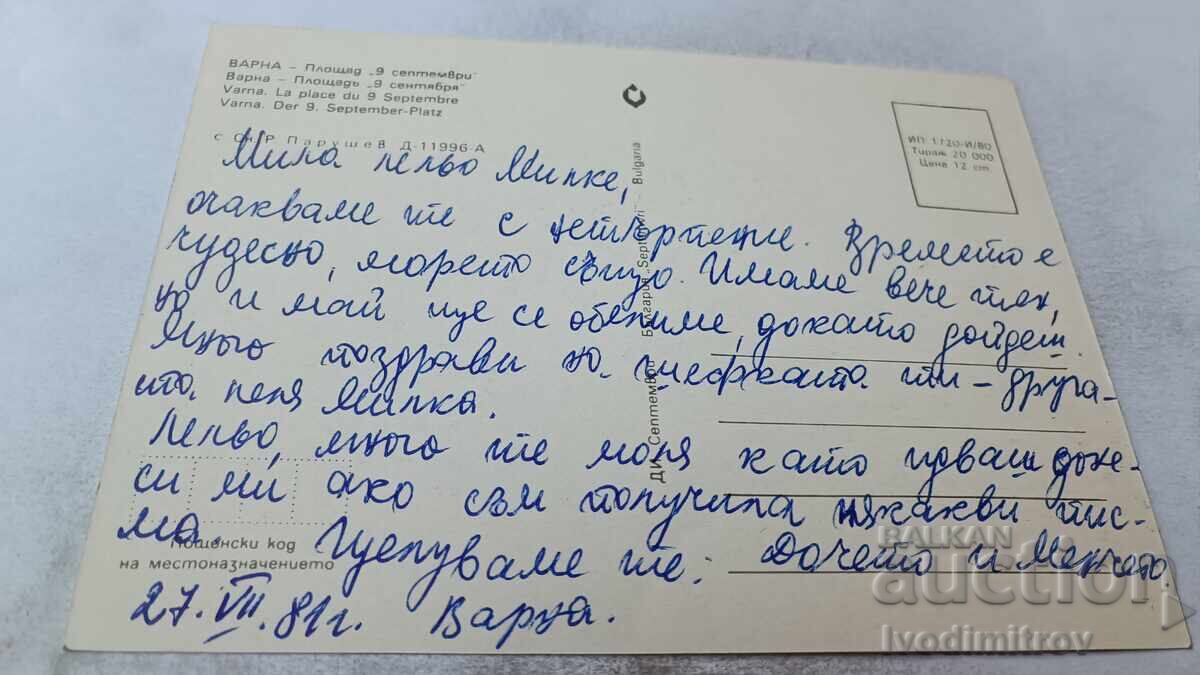 ВАРНА – Площад „9 септември"
Варна – Площадь „9 сентября"
Varna. La place du 9 Septembre
Varna. Der 9. September-Platz
с Сн. Р Парушев Д-11996-А
ИП 1720-И/80
Тираж 20 000
Цена 12 ст
ДИ Септември България „Septemvri" – Bulgaria
Мила лельо Милке,
очакваме те с нетърпение. Времето е
чудесно, морето също. Имаме вече тен,
но и май ще се обелиме, докато дойдеш.
Много поздрави на шефката ти – друга-
та леля Милка.
Лельо, много те моля като идваш доне-
си ми ако съм получила някакви пис-
ма. Целуваме те: Дочето и Менчето.
27. VII. 81 г. Варна.
Пощенски код
на местоназначението
BALKAN
auction
Ivodimitrov